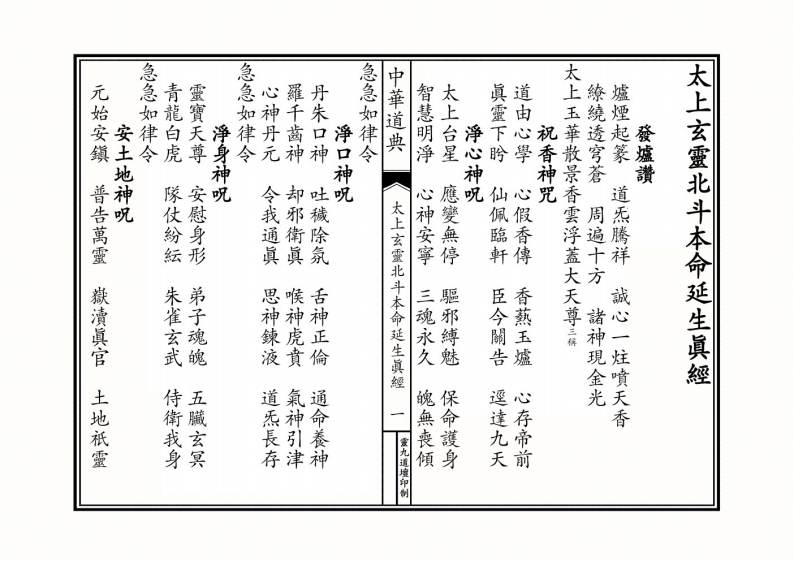 太上玄靈北斗本命延生眞經
發爐讚
爐煙起篆　道炁騰祥　誠心一炷噴天香
繚繞透穹蒼　周遍十方　諸神現金光
太上玉華散景香雲浮蓋大天尊三稱
祝香神咒
道由心學　心假香傳　香爇玉爐　心存帝前
眞靈下盻　仙佩臨軒　臣今關告　逕達九天
淨心神呪
太上台星　應變無停　驅邪縛魅　保命護身
智慧明淨　心神安寧　三魂永久　魄無喪傾
中華道典
太上玄靈北斗本命延生眞經
一
靈九道壇印制
急急如律令
淨口神呪
丹朱口神　吐穢除氛　舌神正倫　通命養神
羅千齒神　却邪衛眞　喉神虎賁　氣神引津
心神丹元　令我通眞　思神鍊液　道炁長存
急急如律令
淨身神呪
靈寶天尊　安慰身形　弟子魂魄　五臟玄冥
青龍白虎　隊仗紛紜　朱雀玄武　侍衛我身
急急如律令
安土地神呪
元始安鎮　普告萬靈　嶽瀆眞官　土地祇靈